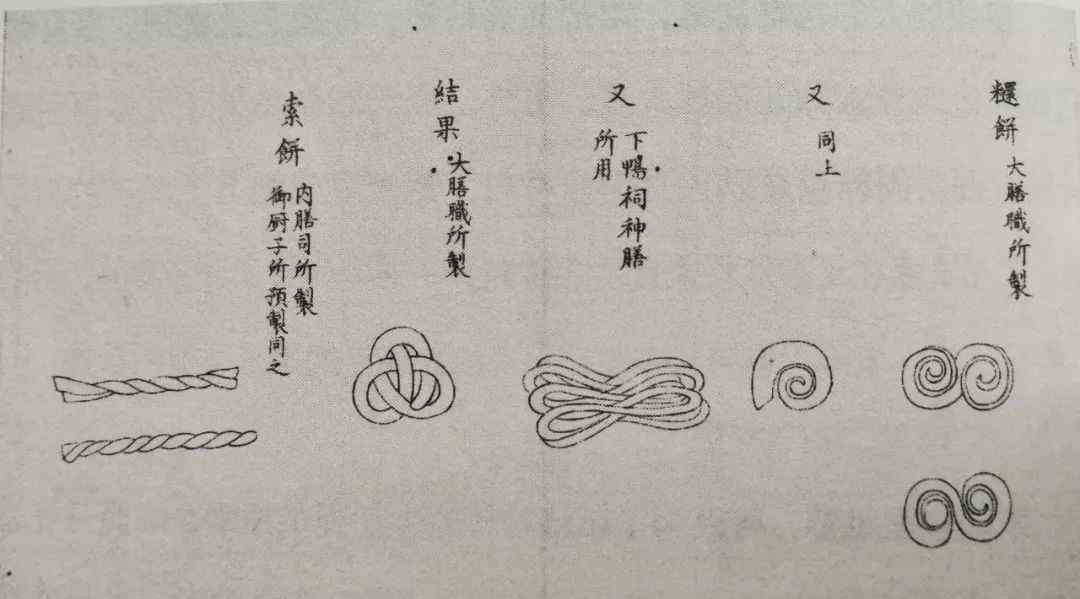 糫餅 大膳職所製
又 同上
又 下鴨祠神膳
所用
結果 大膳職所製
索餅 内膳司所製
御厨子所預製同之